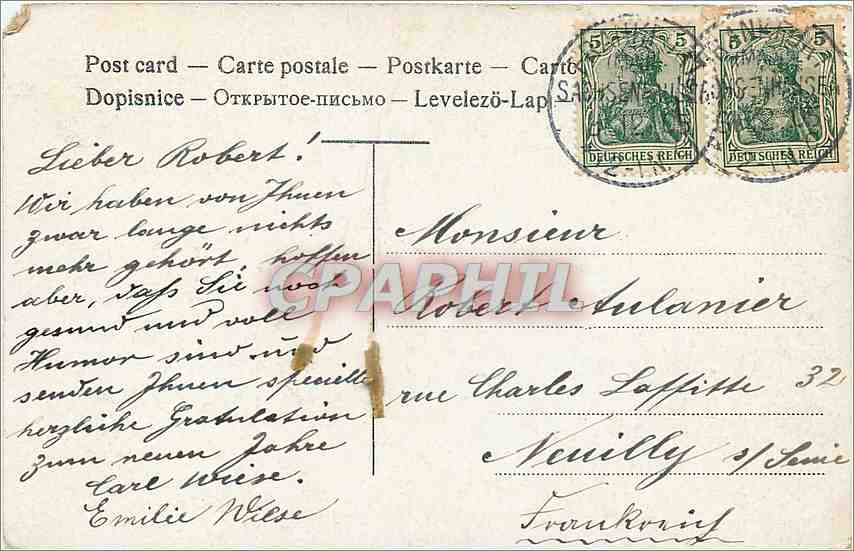 Post card — Carte postale — Postkarte — Carto
Dopisnice — Открытое-письмо — Levelezö-Lap
5 5
5 5
DEUTSCHES REICH
DEUTSCHES REICH
Lieber Robert!
Wir haben von Ihnen
zwar lange nichts
mehr gehört, hoffen
aber, daß Sie noch
gesund und voll
Humor sind und
senden Ihnen specielle
herzliche Gratulation
zum neuen Jahre
Carl Wiese.
Emilie Wiese
Monsieur
Robert Aulanier
rue Charles Laffitte 32
Neuilly s/Seine
Frankreich
CPAPHIL